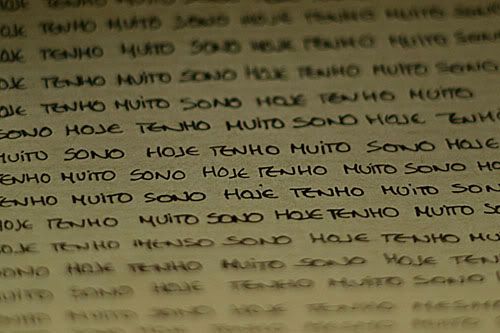 HOJE TENHO MUITO SONO HOJE TENHO MUITO
OJE TENHO MUITO SONO HOJE TENHO MUITO SONO
OJE TENHO MUITO SONO HOJE TENHO MUITO SONO
OJE TENHO MUITO SONO HOJE TENHO MUITO
SONO HOJE TENHO MUITO SONO HOJE TENHO
MUITO SONO HOJE TENHO MUITO SONO HOJE
TENHO MUITO SONO HOJE TENHO MUITO SONO
TENHO MUITO SONO HOJE TENHO MUITO SON
HOJE TENHO MUITO SONO HOJE TENHO MUITO SO
OJE TENHO IMENSO SONO HOJE TENHO MU
SONO HOJE TENHO MUITO SONO HOJE TEN
MUITO SONO HOJE TENHO MUITO SONO
TENHO MUITO SONO HOJE TENHO